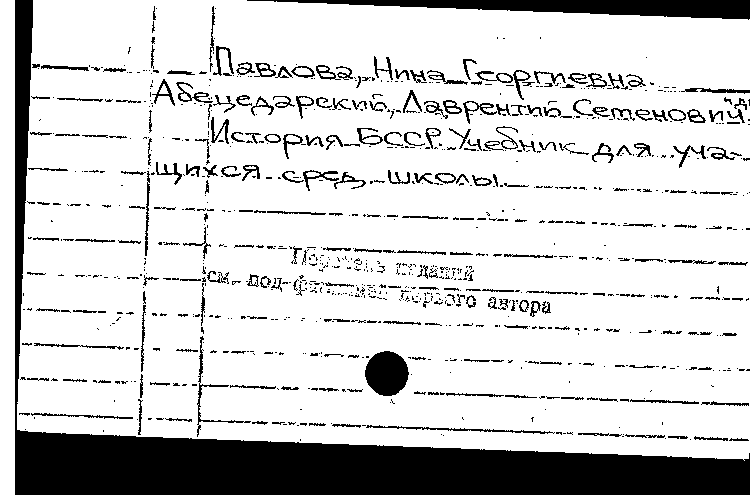 Павлова, Нина Георгиевна.
Абецедарский, Лаврентий Семенович.
История БССР. Учебник для уча-
щихся сред. школы.
Перечень изданий
см. под фамилией первого автора